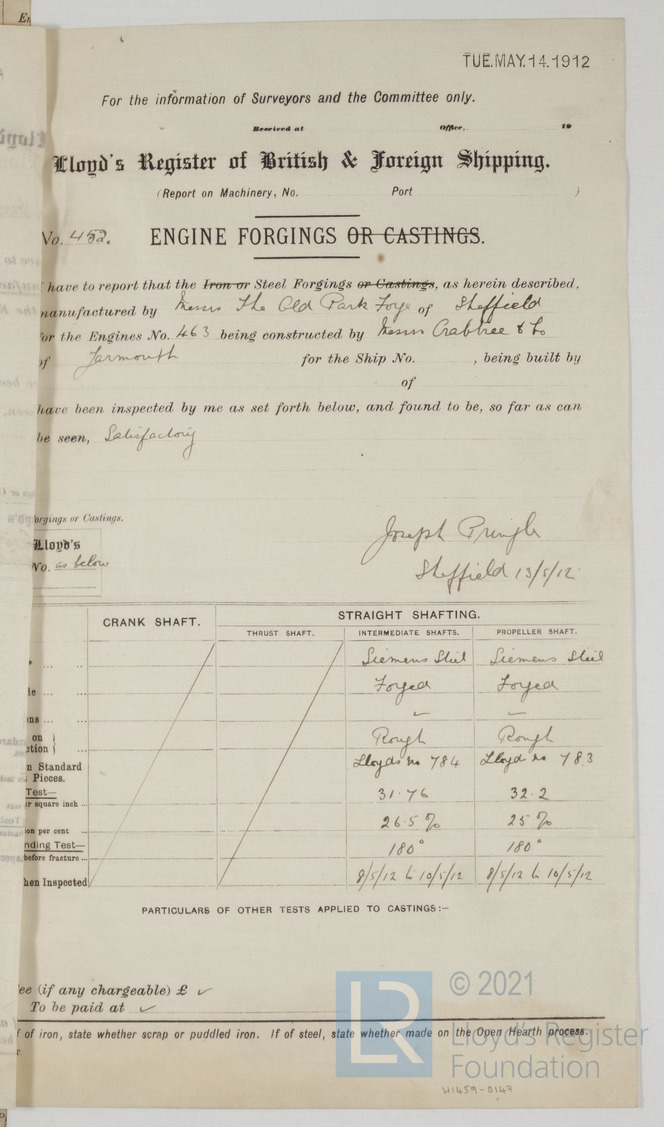 TUE.MAY.14.1912
For the information of Surveyors and the Committee only.
Received at Office, 19
Lloyd's Register of British & Foreign Shipping.
(Report on Machinery, No. Port )
No. 452. ENGINE FORGINGS OR CASTINGS.
have to report that the Iron or Steel Forgings or Castings, as herein described,
manufactured by Messrs The Old Park Forge of Sheffield
for the Engines No. 463 being constructed by Messrs Crabtree & Co
of Yarmouth for the Ship No. , being built by
of
have been inspected by me as set forth below, and found to be, so far as can
be seen, Satisfactory
Forgings or Castings.
Lloyd's
No. as below
Joseph Pringle
Sheffield 13/5/12
CRANK SHAFT. STRAIGHT SHAFTING.
THRUST SHAFT. INTERMEDIATE SHAFTS. PROPELLER SHAFT.
Siemens Steel Siemens Steel
Forged Forged
on
ction Rough Rough
n Standard
Pieces. Lloyds no 784 Lloyds no 783
Test—
r square inch ... 31.76 32.2
on per cent 26.5 % 25 %
nding Test—
before fracture ... 180° 180°
hen Inspected 8/5/12 to 10/5/12 8/5/12 to 10/5/12
PARTICULARS OF OTHER TESTS APPLIED TO CASTINGS:—
ee (if any chargeable) £ ✓
To be paid at ✓
f of iron, state whether scrap or puddled iron. If of steel, state whether made on the Open Hearth process
r.
LR © 2021
Lloyd's Register
Foundation
W1459-0147